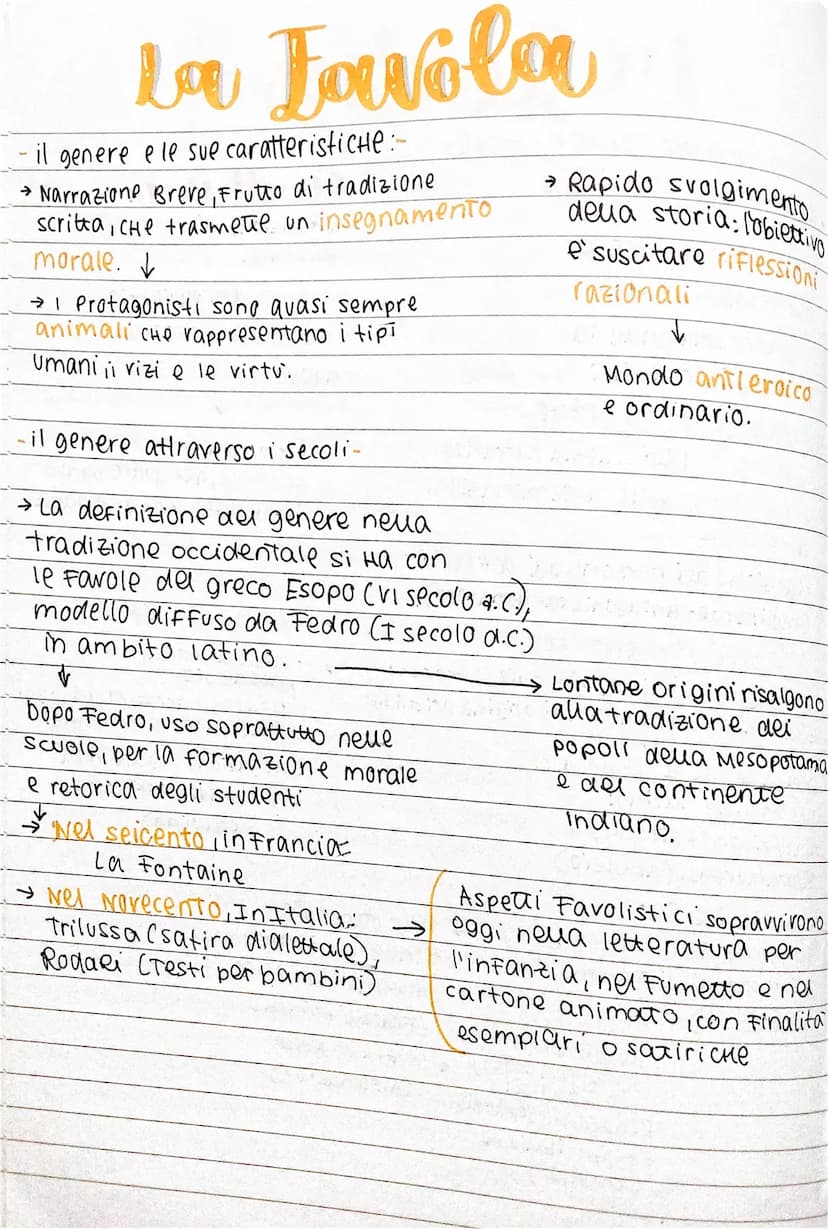 La Favola
- il genere e le sue caratteristiche:-
→ Narrazione Breve, Frutto di tradizione
scritta, che trasmette un insegnamento
morale. ↓
→ i Protagonisti sono quasi sempre
animali che rappresentano i tipi
umani, i vizi e le virtù.
→ Rapido svolgimento
della storia: l'obiettivo
è suscitare riflessioni
razionali
↓
Mondo antieroico
e ordinario.
- il genere attraverso i secoli-
→ La definizione del genere nella
tradizione occidentale si ha con
le Favole del greco Esopo (VI secolo a.C.),
modello diffuso da Fedro (I secolo d.C.)
in ambito latino.
→ Lontane origini risalgono
alla tradizione dei
popoli della Mesopotama
e del continente
indiano.
↓
Dopo Fedro, uso soprattutto nelle
scuole, per la formazione morale
e retorica degli studenti
↓
→ Nel seicento, in Francia:
La Fontaine
→ Nel Novecento, In Italia:
Trilussa (satira dialettale),
Rodari (Testi per bambini)
→ Aspetti Favolistici sopravvivono
oggi nella letteratura per
l'infanzia, nel Fumetto e nel
cartone animato, con Finalità
esemplari o satiriche